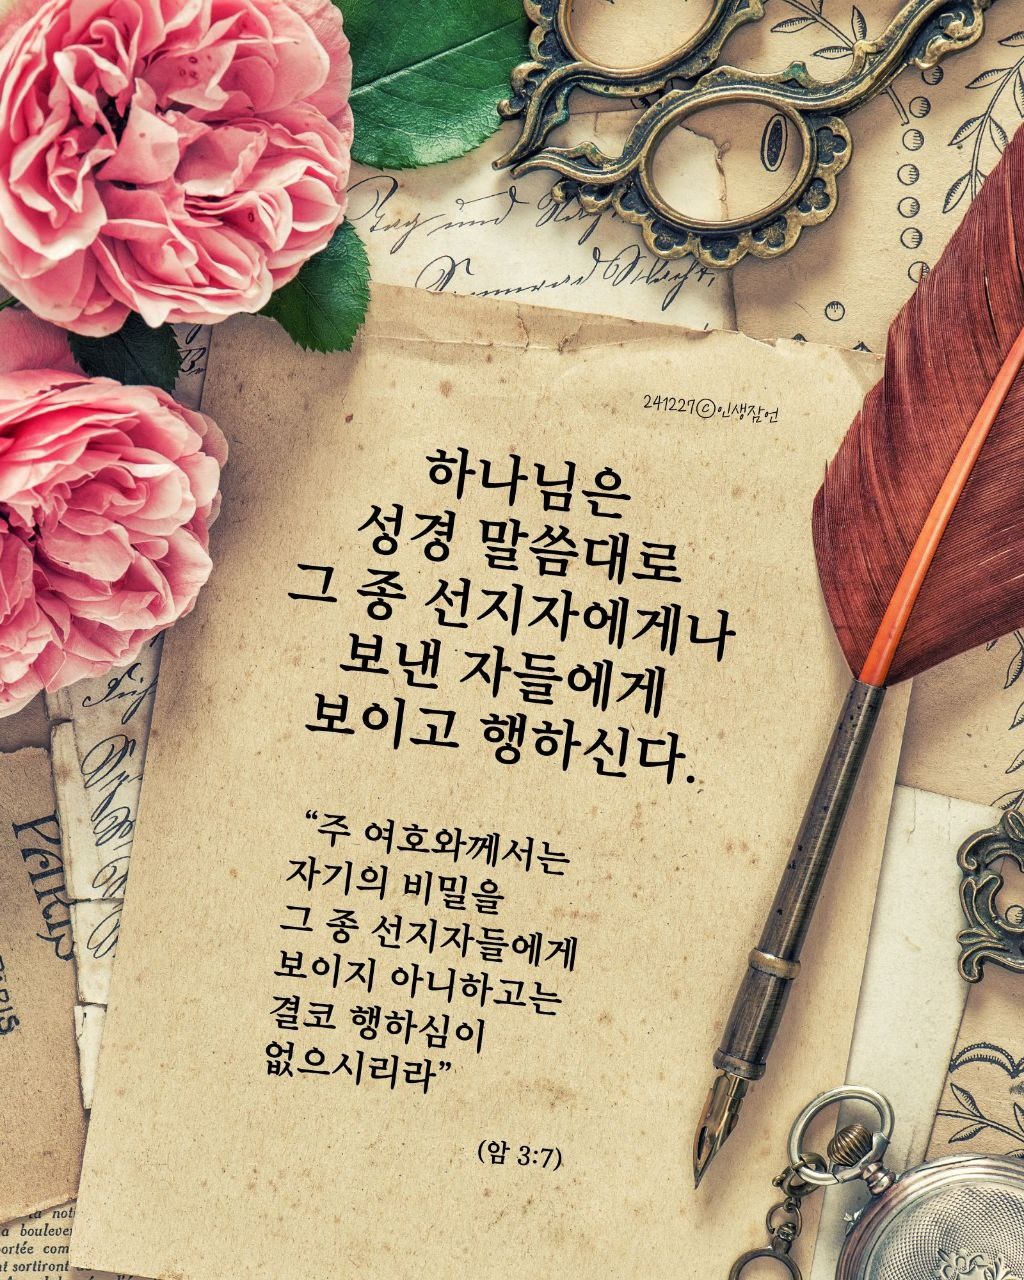 241227ⓒ인생잠언
하나님은
성경 말씀대로
그 종 선지자에게나
보낸 자들에게
보이고 행하신다.
“주 여호와께서는
자기의 비밀을
그 종 선지자들에게
보이지 아니하고는
결코 행하심이
없으시리라”
(암 3:7)
Tag und
PARIS